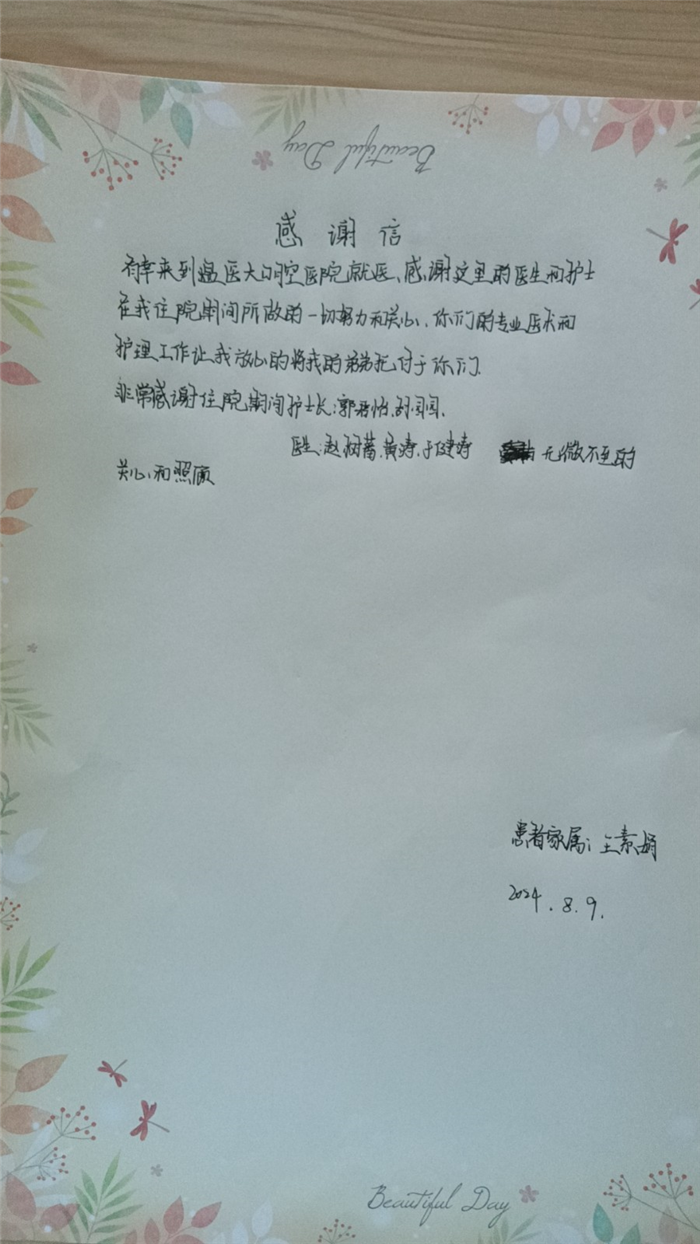 Beautiful Day
感谢信
有幸来到遵医大口腔医院就医、感谢这里的医生和护士
在我住院期间所做的一切努力和关心、你们的专业医术和
护理工作让我放心的将我的弟弟托付于你们.
非常感谢住院期间护士长:郭
医生:赵树蕃.黄涛.于健涛 无微不至的
关心和照顾
患者家属: 王素娟
2024.8.9.
Beautiful Day